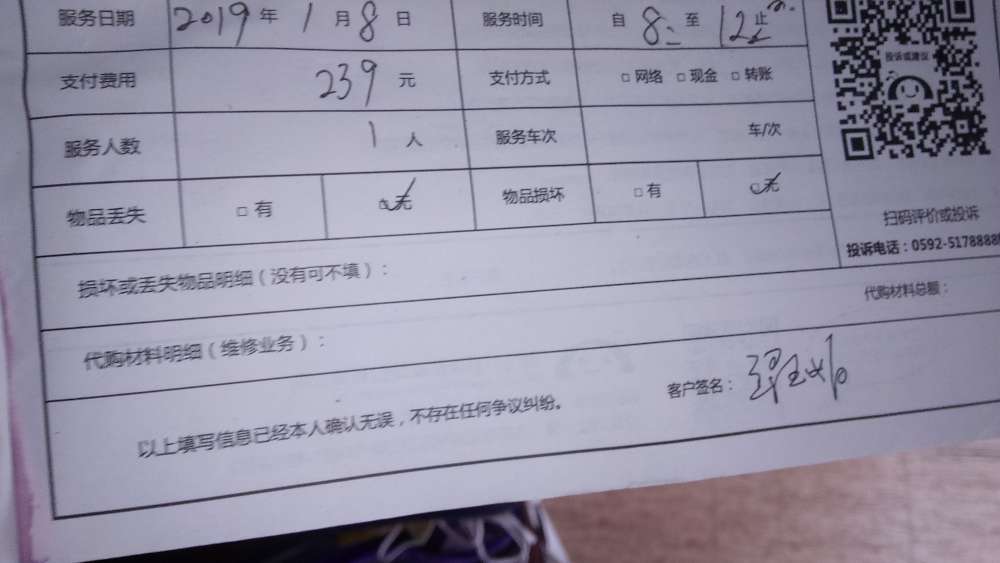 服务日期 2019年 1月8日 服务时间 自 8: 至 12 止
支付费用 239 元 支付方式 □网络 □现金 □转账
服务人数 1 人 服务车次 车/次
物品丢失 □有 □无 物品损坏 □有 □无
投诉或建议
扫码评价或投诉
投诉电话：0592-5178888
损坏或丢失物品明细（没有可不填）：
代购材料明细（维修业务）： 代购材料总额：
以上填写信息已经本人确认无误，不存在任何争议纠纷。 客户签名：